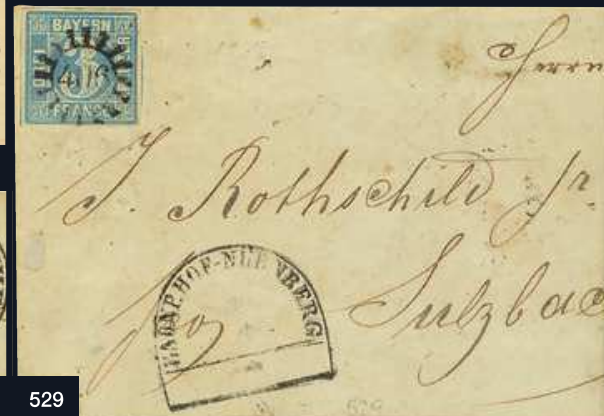 BAYERN
3
416
FRANCO
Herrn
J. Rothschild jr.
BADAPHOF-NÜRNBERG
Sulzbac
529
529